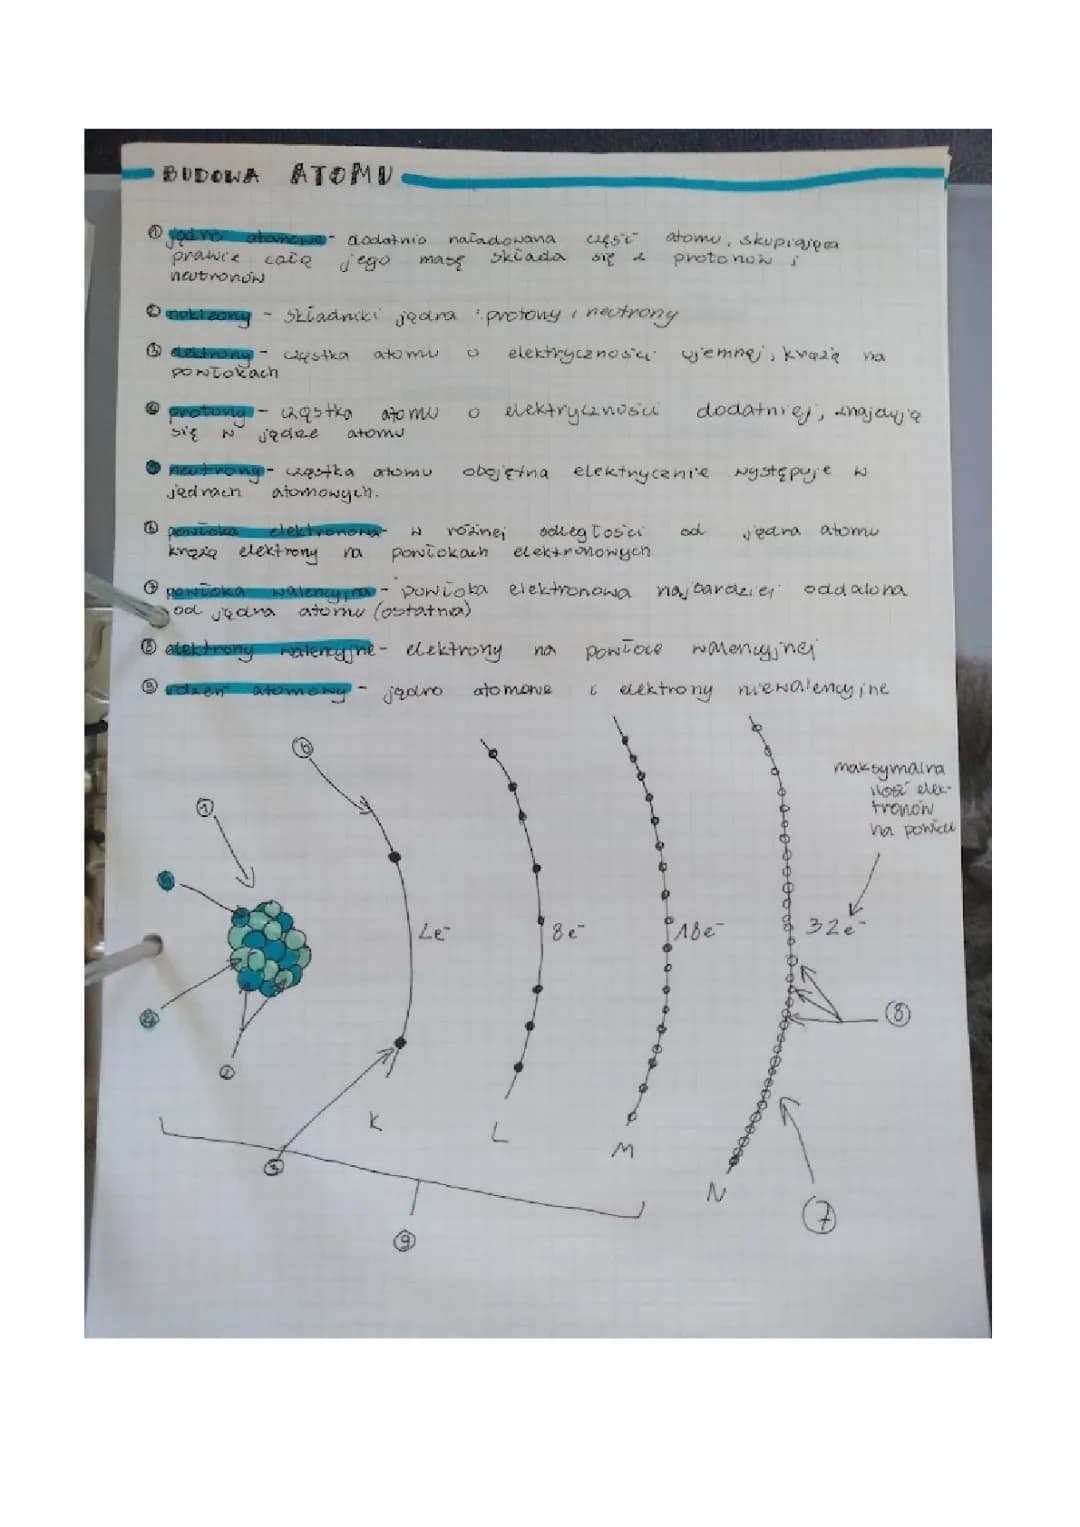 BUDOWA ATOMU
① jądro atomowe - dodatnio naładowana część atomu, skupiająca
prawie całą jego masę składa się z protonów i
neutronów
② nukleony - składniki jądra : protony i neutrony
③ elektrony - cząstka atomu o elektryczności ujemnej, krążą na
powłokach
④ protony - cząstka atomu o elektryczności dodatniej, znajdują
się w jądrze atomu
⑤ neutrony - cząstka atomu obojętna elektrycznie występuje w
jądrach atomowych.
⑥ powłoka elektronowa - w różnej odległości od jądra atomu
krążą elektrony na powłokach elektronowych
⑦ powłoka walencyjna - powłoka elektronowa najbardziej oddalona
od jądra atomu (ostatnia)
⑧ elektrony walencyjne - elektrony na powłoce walencyjnej
⑨ rdzeń atomowy - jądro atomowe i elektrony niewalencyjne
⑥
maksymalna
ilość elek-
tronów
na powłce
①
⑤
2e⁻ 8e⁻ 18e⁻ 32e⁻
⑧
②
K L M N
③
⑦
⑨